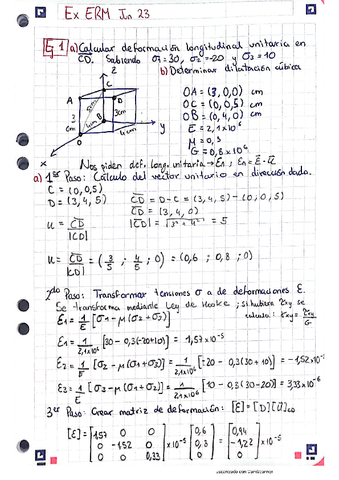 Ex ERM Jun 23
Ej 1 a) Calcular deformación longitudinal unitaria en
CD. Sabiendo σ1 = 30, σ2 = -20 y σ3 = 10
b) Determinar dilatación cúbica
z
C
A
D
5cm
3cm
3
cm
B
4cm
4cm
y
O
x
OA = (3,0,0) cm
OC = (0,0,5) cm
OB = (0,4,0) cm
E = 2,1×10⁶
G = 0,8×10⁶
Nos piden def. long. unitaria → εn ; εn = ε̄ · ū
a) 1er Paso: Cálculo del vector unitario en dirección dada.
C = (0,0,5)
D = (3,4,5)
CD = D - C = (3,4,5) - (0,0,5)
CD = (3,4,0)
|CD| = √3² + 4² = 5
u = CD / |CD|
u = CD / |CD| = (3/5 ; 4/5 ; 0) = (0,6 ; 0,8 ; 0)
2do Paso: Transformar tensiones σ a de deformaciones ε.
Se transforma mediante Ley de Hooke ; si hubiera τxy se
calcula: γxy = τxy / G
ε1 = 1/E [σ1 - μ(σ2 + σ3)]
ε1 = 1/2,1·10⁶ [30 - 0,3(-20+10)] = 1,57×10⁻⁵
ε2 = 1/E [σ2 - μ(σ1+σ3)] = 1/2,1·10⁶ [-20 - 0,3(30+10)] = -1,52×10⁻⁵
ε3 = 1/E [σ3 - μ(σ1+σ2)] = 1/2,1·10⁶ [10 - 0,3(30-20)] = 3,33×10⁻⁶
3er Paso: Crear matriz de deformación:
[ε] = [1,57 0 0
0 -1,52 0
0 0 0,33] ×10⁻⁵ [0,6
0,8
0] = [0,94
-1,22
0] ×10⁻⁵
Escaneado con CamScanner